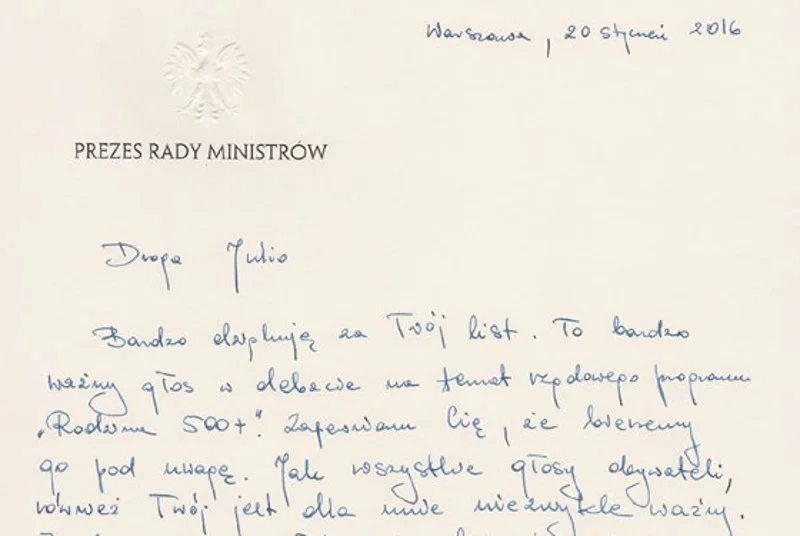 Warszawa, 20 styczeń 2016
PREZES RADY MINISTRÓW
Droga Julio
Bardzo dziękuję za Twój list. To bardzo
ważny głos w debacie na temat rządowego programu
„Rodzina 500+". Zapewniam Cię, że bierzemy
go pod uwagę. Jak wszystkie głosy obywateli,
również Twój jest dla mnie niezwykle ważny.